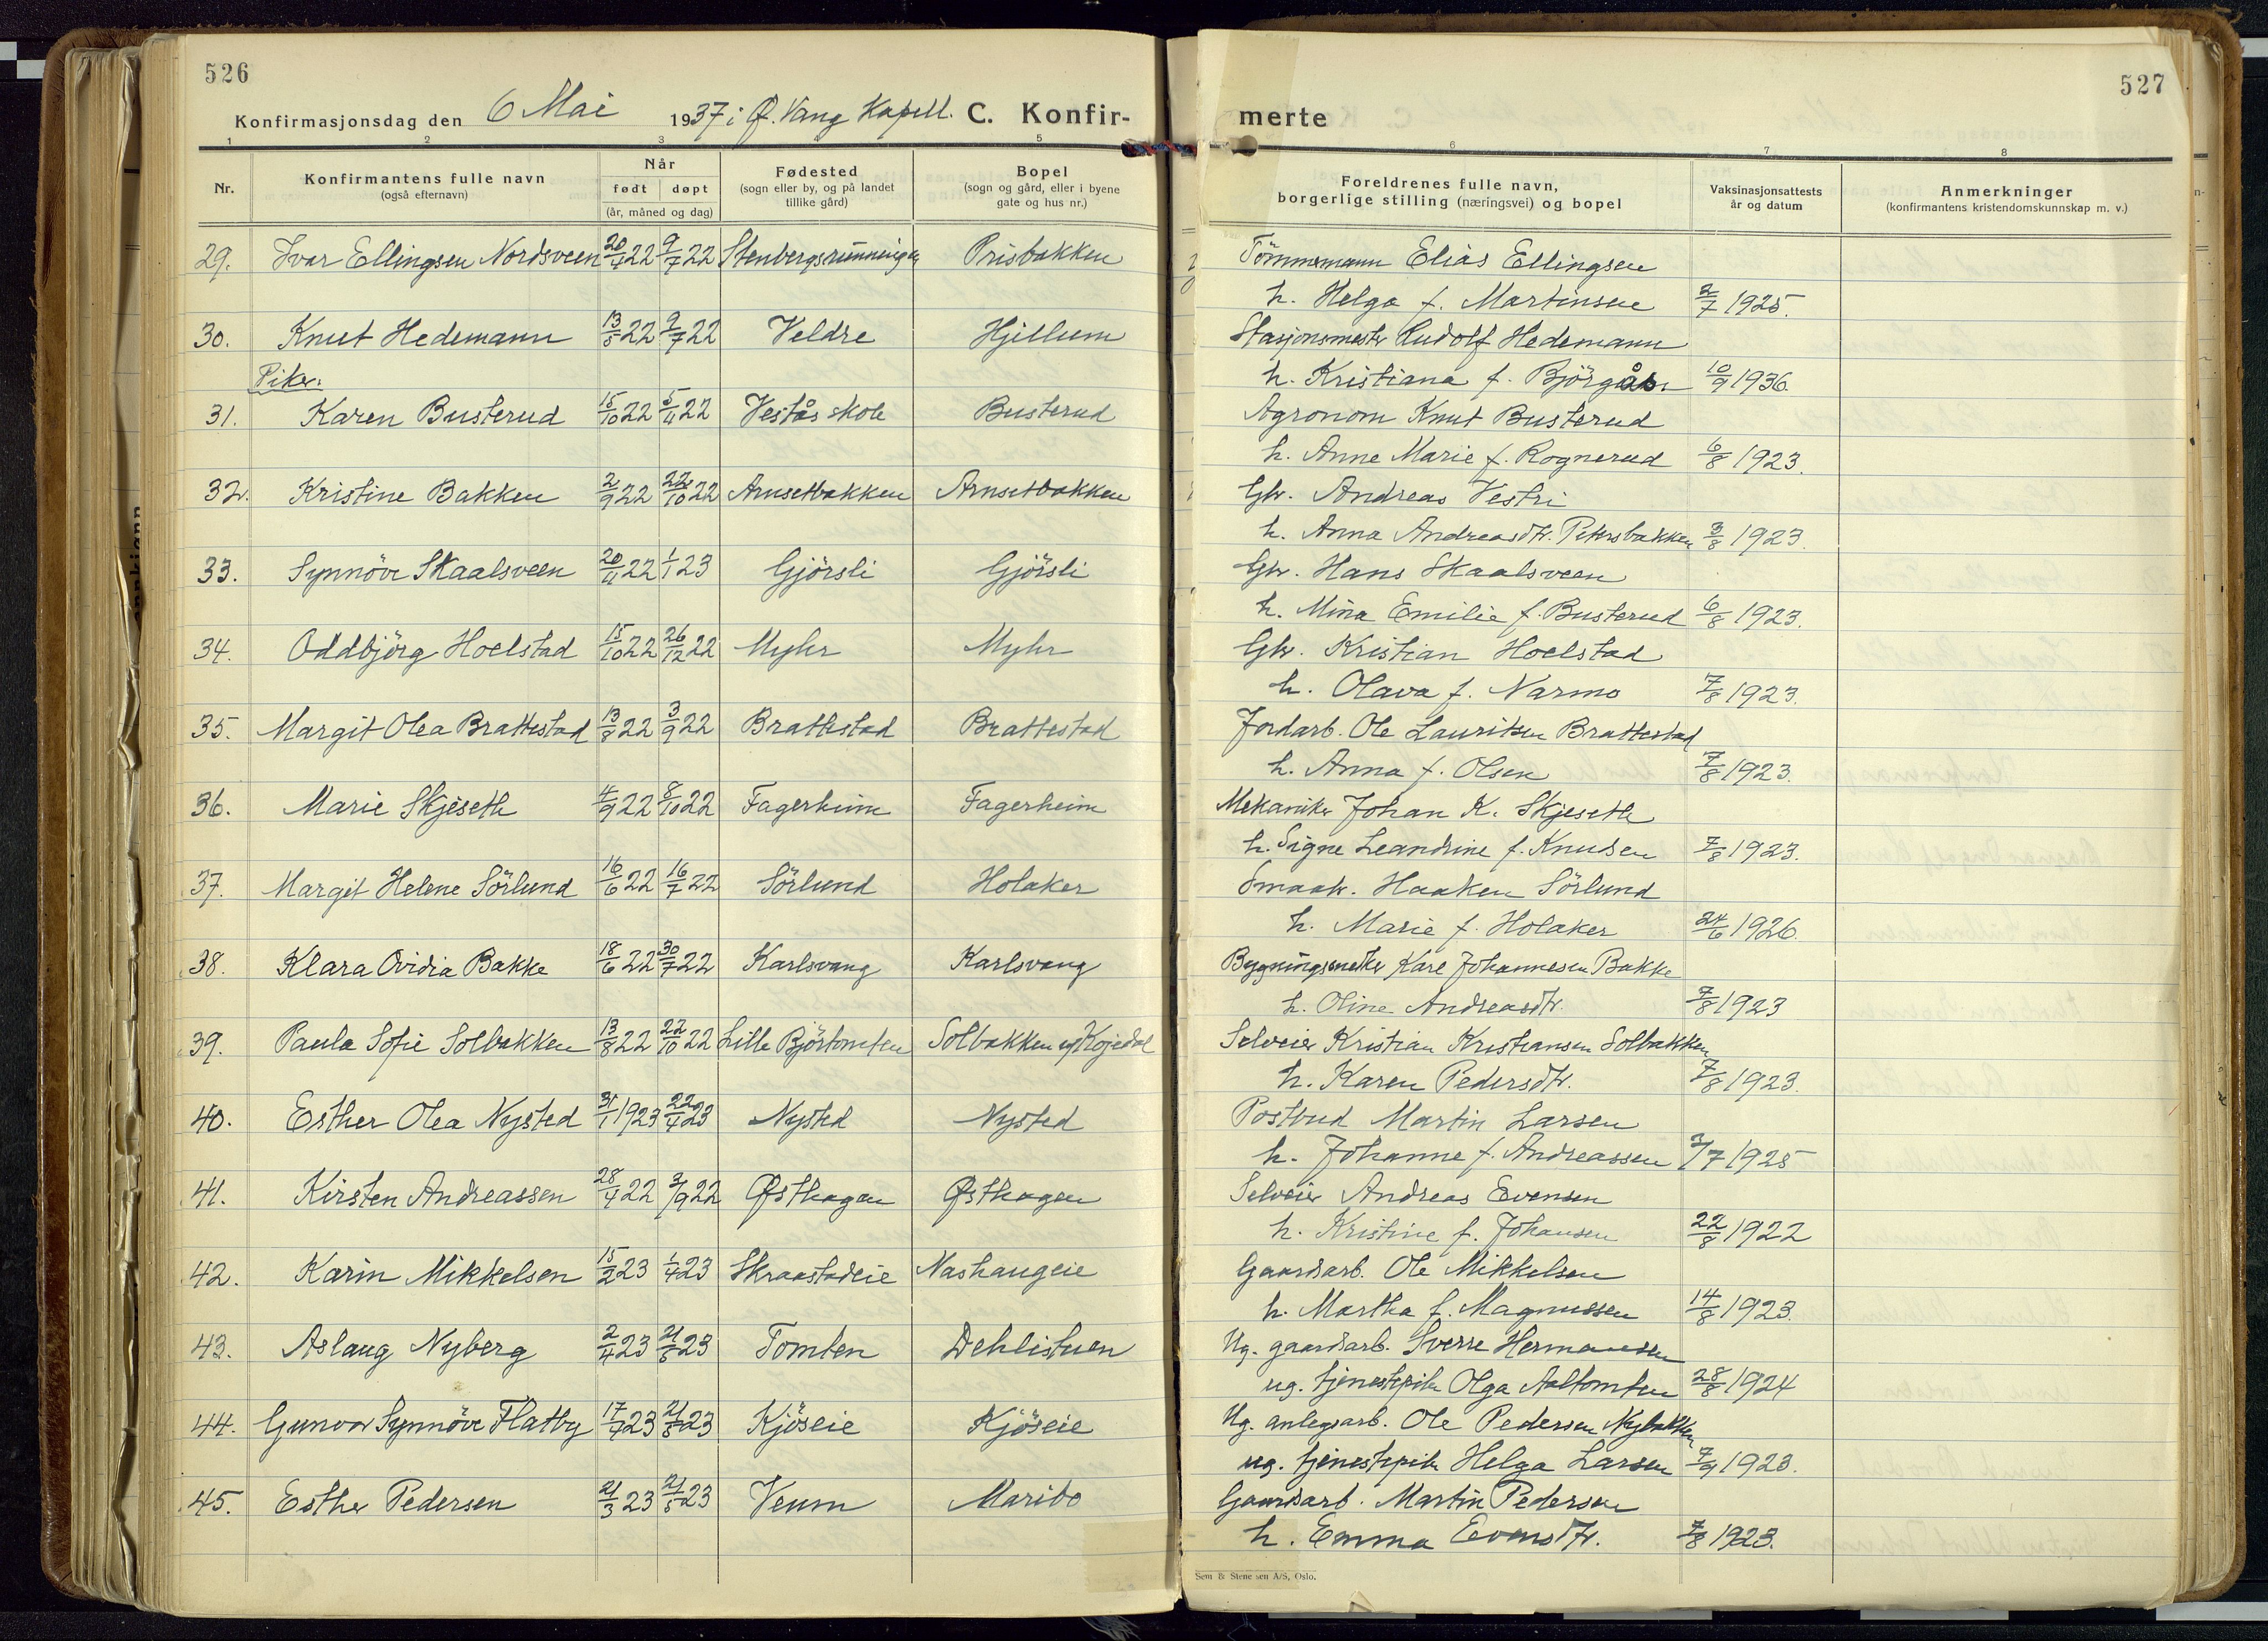 526
Konfirmasjonsdag den 6 Mai 1937 i Ø. Vang Kapell. C. Konfir-
1 2 3 5
Nr. Konfirmantens fulle navn (også efternavn) Når født døpt (år, måned og dag) Fødested (sogn eller by, og på landet tillike gård) Bopel (sogn og gård, eller i byene gate og hus nr.)
29. Ivar Ellingsen Nordsveen 20/4 22 9/7 22 Stenbergsrünningen Prisbakken
30. Knut Hedemann 13/5 22 9/7 22 Veldre Hjellum
Piker:
31. Karen Busterud 15/10 22 5/11 22 Vestås skole Busterud
32. Kristine Bakken 2/9 22 22/10 22 Arnsetbakken Arnsetbakken
33. Synnöve Skaalsveen 20/11 22 1/1 23 Gjörsli Gjörsli
34. Oddbjörg Hoelstad 15/10 22 26/12 22 Myhr Myhr
35. Margit Olea Brattestad 13/8 22 3/9 22 Brattestad Brattestad
36. Marie Skjeseth 4/9 22 8/10 22 Fagerheim Fagerheim
37. Margit Helene Sörlund 16/6 22 16/7 22 Sörlund Holaker
38. Klara Ovidia Bakke 18/6 22 30/7 22 Karlsvang Karlsvang
39. Paula Sofie Solbakken 13/8 22 22/10 22 Lille Björtomten Solbakken
40. Esther Olea Nysted 31/1 1923 22/4 23 Nysted Nysted
41. Kirsten Andreassen 28/4 22 3/9 22 Østhagen Østhagen
42. Karin Mikkelsen 15/2 23 1/4 23 Skraastadeie Nashaugeie
43. Aslaug Nyberg 2/4 23 21/5 23 Tomten Dehlistuen
44. Gunvor Synnöve Flatby 17/4 23 23 Kjöseie Kjöseie
45. Esther Pedersen 21/3 23 21/5 23 Veum Maribo
527
merte
6 7 8
Foreldrenes fulle navn, borgerlige stilling (næringsvei) og bopel Vaksinasjonsattests år og datum Anmerkninger (konfirmantens kristendomskunnskap m. v.)
Tömmermann Elias Ellingsen
h. Helga f. Martinsen 2/7 1925.
Stasjonsmester Rudolf Hedemann
h. Kristiana f. Björgås. 10/9 1936.
Agronom Knut Busterud
h. Anne Marie f. Rognerud 6/8 1923.
Gbr. Andreas Vestri
h. Anna Andreasdtr. Petersbakken 3/8 1923.
Gbr. Hans Skaalsveen
h. Mina Emilie f. Busterud 6/8 1923.
Gbr. Kristian Hoelstad
h. Olava f. Narmo 7/8 1923.
Jordarb. Ole Lauritsen Brattestad
h. Anna f. Olsen 7/8 1923.
Mekaniker Johan K. Skjeseth
h. Signe Leandrine f. Knudsen 7/8 1923.
Smaabr. Haaken Sörlund
h. Marie f. Holaker 24/6 1926.
Bygningsmester Kare Johannesen Bakke
h. Oline Andreasdtr. 7/8 1923
Selveier Kristian Kristiansen Solbakken
h. Karen Pedersdtr. 7/8 1923.
Postbud Martin Larsen
h. Johanne f. Andreassen 2/7 1925
Selveier Andreas Evensen
h. Kristine f. Johansen 22/8 1922
Gaardsarb. Ole Mikkelsen
h. Martha f. Magnussen 14/8 1923.
Ug. gaardsarb. Sverre Hermansen
ug. tjenestepike Olga Aaltomten 28/8 1924
Ug. anlegsarb. Ole Pedersen Nybakken
ug. tjenestepike Helga Larsen 7/9 1923.
Gaardsarb. Martin Pedersen
h. Emma Evensdtr. 7/8 1923.
Sem & Stenersen A/S, Oslo.